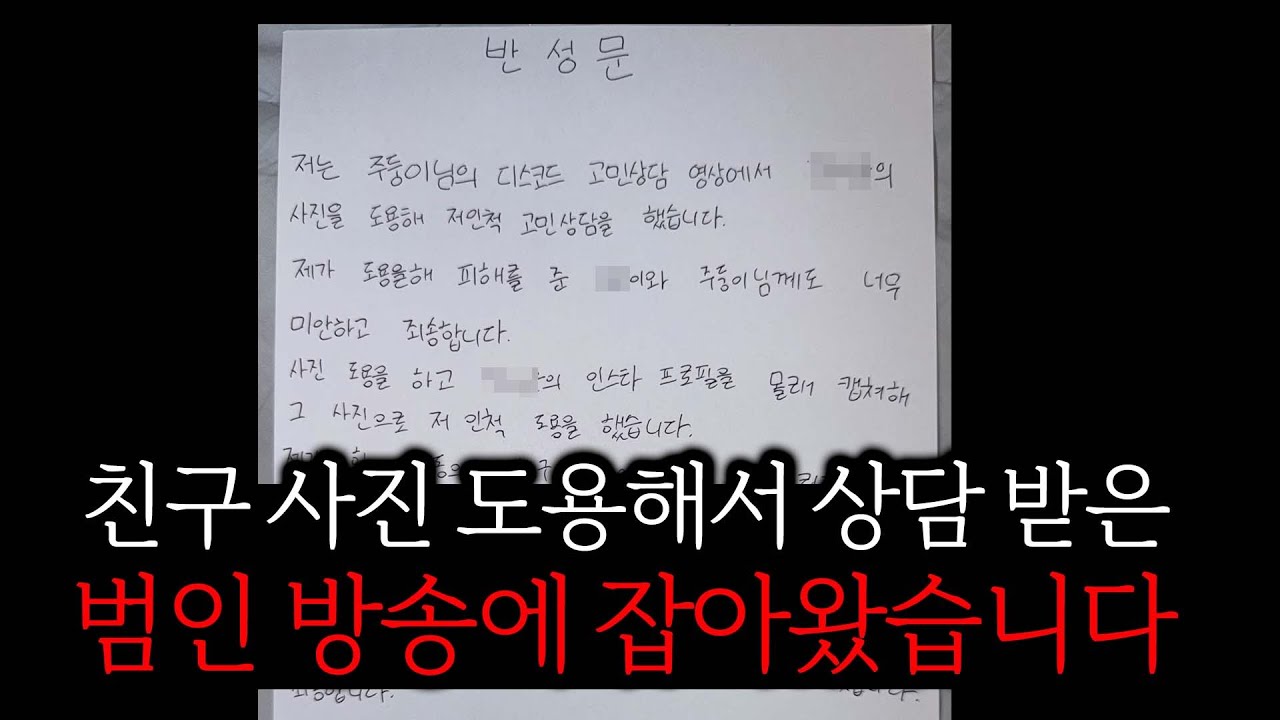 반성문
저는 주둥이님의 디스코드 고민상담 영상에서 의
사진을 도용해 저인척 고민상담을 했습니다.
제가 도용을해 피해를 준 이와 주둥이님께도 너무
미안하고 죄송합니다.
사진 도용을 하고 의 인스타 프로필을 몰래 캡쳐해
그 사진으로 저 인척 도용을 했습니다.
친구 사진 도용해서 상담 받은
범인 방송에 잡아왔습니다